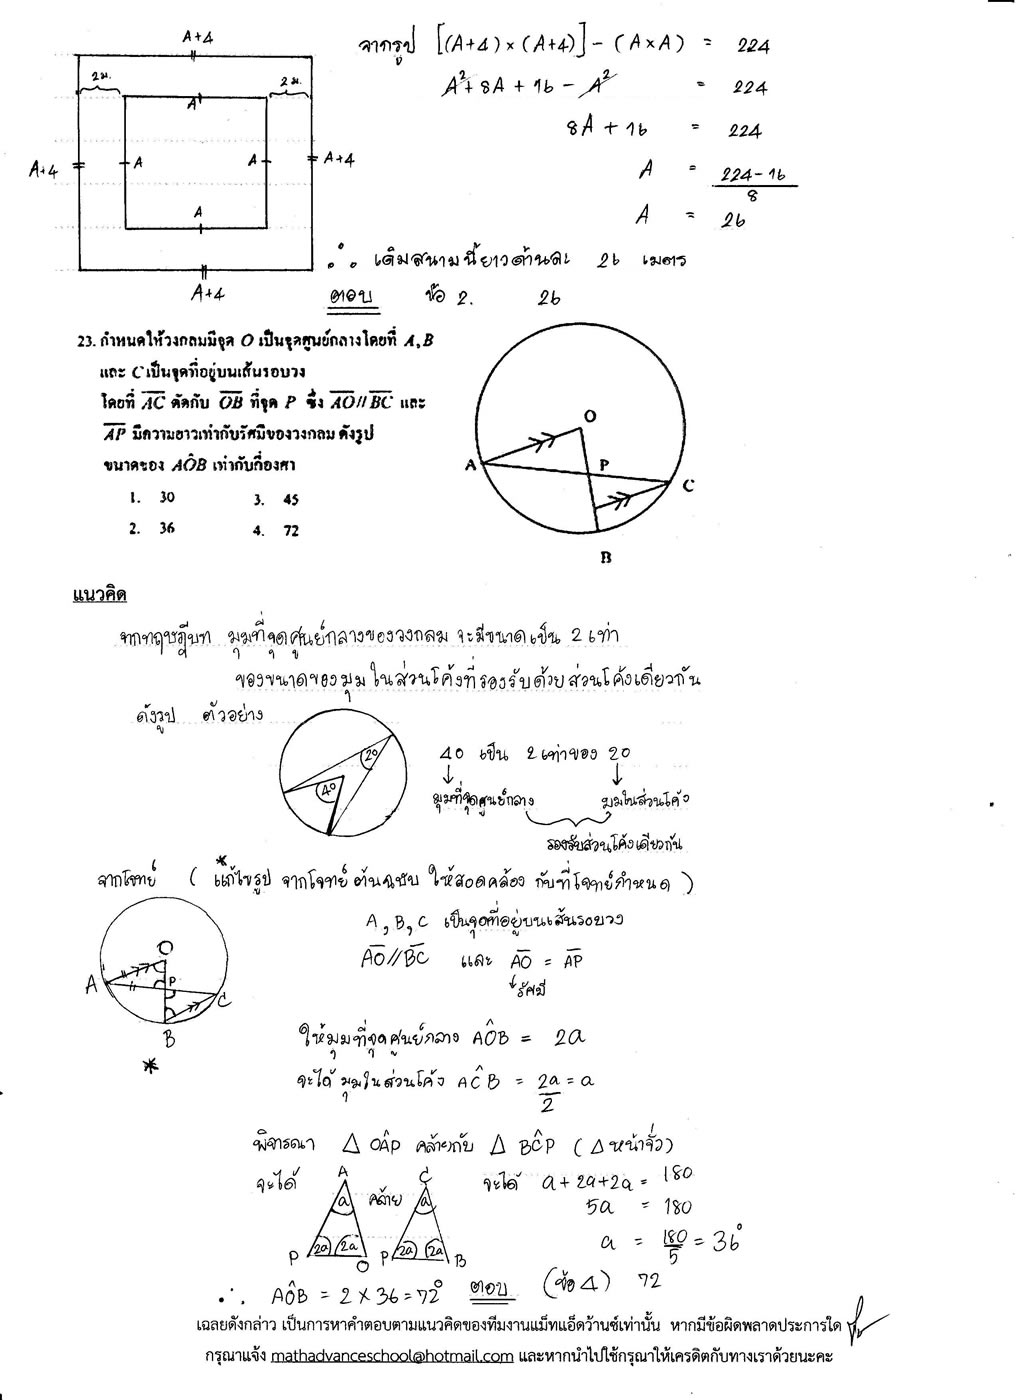 A+4
จากรูป [(A+4)×(A+4)] − (A×A) = 224
2 ม. 2 ม.
A² + 8A + 16 − A² = 224
A
8A + 16 = 224
A+4 A A A+4
A = 224−16
8
A
A = 26
∴ เดิมสนามนี้ยาวด้านละ 26 เมตร
A+4
ตอบ ข้อ 2. 26
23. กำหนดให้วงกลมมีจุด O เป็นจุดศูนย์กลางโดยที่ A, B
และ C เป็นจุดที่อยู่บนเส้นรอบวง
โดยที่ AC ตัดกับ OB ที่จุด P ซึ่ง AO // BC และ
AP มีความยาวเท่ากับรัศมีของวงกลม ดังรูป
ขนาดของ AÔB เท่ากับกี่องศา
1. 30 3. 45
2. 36 4. 72
O
A P C
B
แนวคิด
จากทฤษฎีบท มุมที่จุดศูนย์กลางของวงกลม จะมีขนาดเป็น 2 เท่า
ของขนาดของมุมในส่วนโค้งที่รองรับด้วยส่วนโค้งเดียวกัน
ดังรูป ตัวอย่าง
20
40
40 เป็น 2 เท่าของ 20
มุมที่จุดศูนย์กลาง มุมในส่วนโค้ง
รองรับส่วนโค้งเดียวกัน
จากโจทย์ ( *แก้ไขรูป จากโจทย์ต้นฉบับ ให้สอดคล้อง กับที่โจทย์กำหนด )
A, B, C เป็นจุดที่อยู่บนเส้นรอบวง
O
AO // BC และ AO = AP
A P C
รัศมี
B
ให้มุมที่จุดศูนย์กลาง AÔB = 2a
*
จะได้ มุมในส่วนโค้ง AĈB = 2a = a
2
พิจารณา △ OÂP คล้ายกับ △ BĈP (△ หน้าจั่ว)
จะได้ A คล้าย C จะได้ a + 2a + 2a = 180
a a
5a = 180
2a 2a 2a 2a
P O P B
a = 180 = 36°
5
∴ AÔB = 2 × 36 = 72° ตอบ (ข้อ 4) 72
เฉลยดังกล่าว เป็นการหาคำตอบตามแนวคิดของทีมงานแม็ทแอ็ดว้านซ์เท่านั้น หากมีข้อผิดพลาดประการใด
กรุณาแจ้ง mathadvanceschool@hotmail.com และหากนำไปใช้กรุณาให้เครดิตกับทางเราด้วยนะคะ